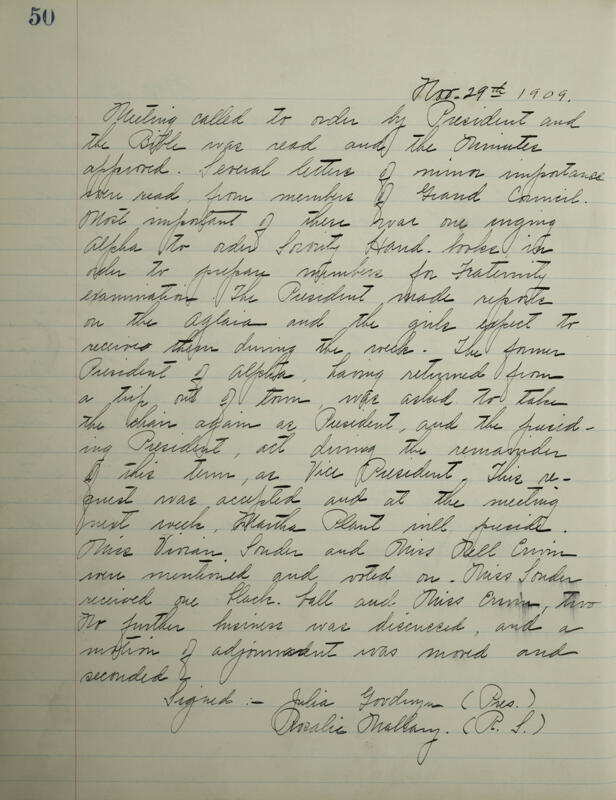 50
Nov. 29th 1909.
Meeting called to order by President and
the Bible was read and the Minutes
approved. Several letters of minor importance
were read, from members of Grand Council.
Most important of these was one urging
Alpha to order Sorority Hand-books in
order to prepare members for Fraternity
examination. The President made reports
on the Aglaia and the girls expect to
receive them during the week. The former
President of Alpha, having returned from
a trip out of town, was asked to take
the chair again as President, and the presid-
ing President, act during the remainder
of this term, as Vice President. This re-
quest was accepted and at the meeting
next week, Martha Plant will preside.
Miss Vivian Souder and Miss Nell Erwin
were mentioned and voted on. Miss Souder
received one black-ball and Miss Erwin, two
No further business was discussed, and a
motion of adjournment was moved and
seconded
Signed :- Julia (Pres.)
Rosalie Mallary. (R. S.)